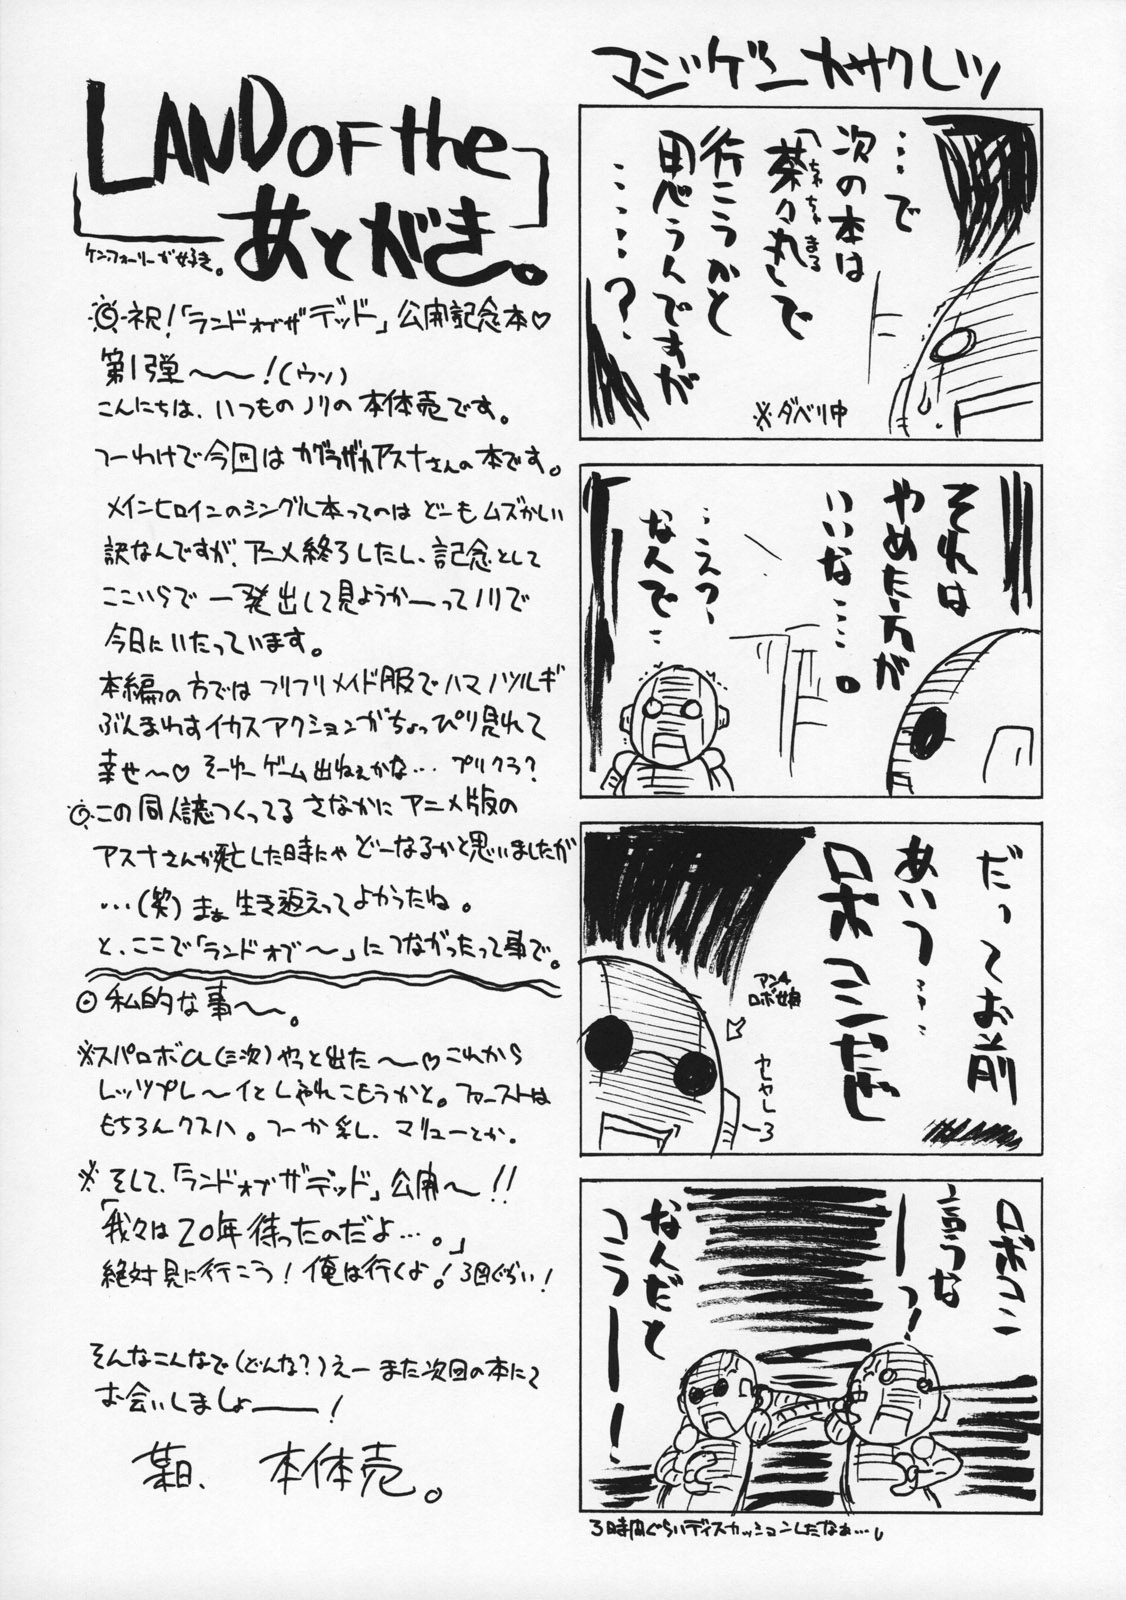 LAND OF the
あとがき。
ケン・フォーリーが好き。
◎祝!「ランドオブザデッド」公開記念本♡
第1弾〜〜!(ウソ)
こんにちは、いつものノリの本体売です。
つーわけで今回はカグラザカアスナさんの本です。
メインヒロインのシングル本ってのはどーもムズかしい
訳なんですが、アニメ終了したし、記念として
ここいらで一発出して見ようかーってノリで
今日にいたっています。
本編の方ではフリフリメイド服でハマノツルギ
ぶんまわすイカスアクションがちょっぴり見れて
幸せ〜♡そーゆーゲーム出ねぇかな…プリクラ?
◎この同人誌つくってるさなかにアニメ版の
アスナさんが死亡した時にゃどーなるかと思いましたが
…(笑)まぁ生き返えってよかったね。
と、ここで「ランドオブ〜」につながったって事で。
◎私的な事〜〜。
※スパロボα(三次)やっと出た〜♡これから
レッツプレ〜イとしゃれこもうかと。ファーストは
もちろんクスハ。つーか乳、マリューとか。
※そして、「ランドオブザデッド」公開〜!!
「我々は20年待ったのだよ…。」
絶対見に行こう!俺は行くよ!3回ぐらい!
そんなこんなで(どんな?)えーまた次回の本にて
お会いしましょーー!
某日、本体売。
マジゲンカサクレツ
…で
次の本は
「茶々丸」で
ちゃちゃまる
行こうかと
思うんですが
……?
※ダベリ中
それは
やめた方が
いいな…。
…えっ、
なんで…
だってお前
あいつ…
ロボコンだぜ
アンチ
ロボ娘
カセヤしーろ
ロボコン
言うな
ーっ!
なんだと
コラーー!
3時間ぐらいディスカッションしたなぁ…。